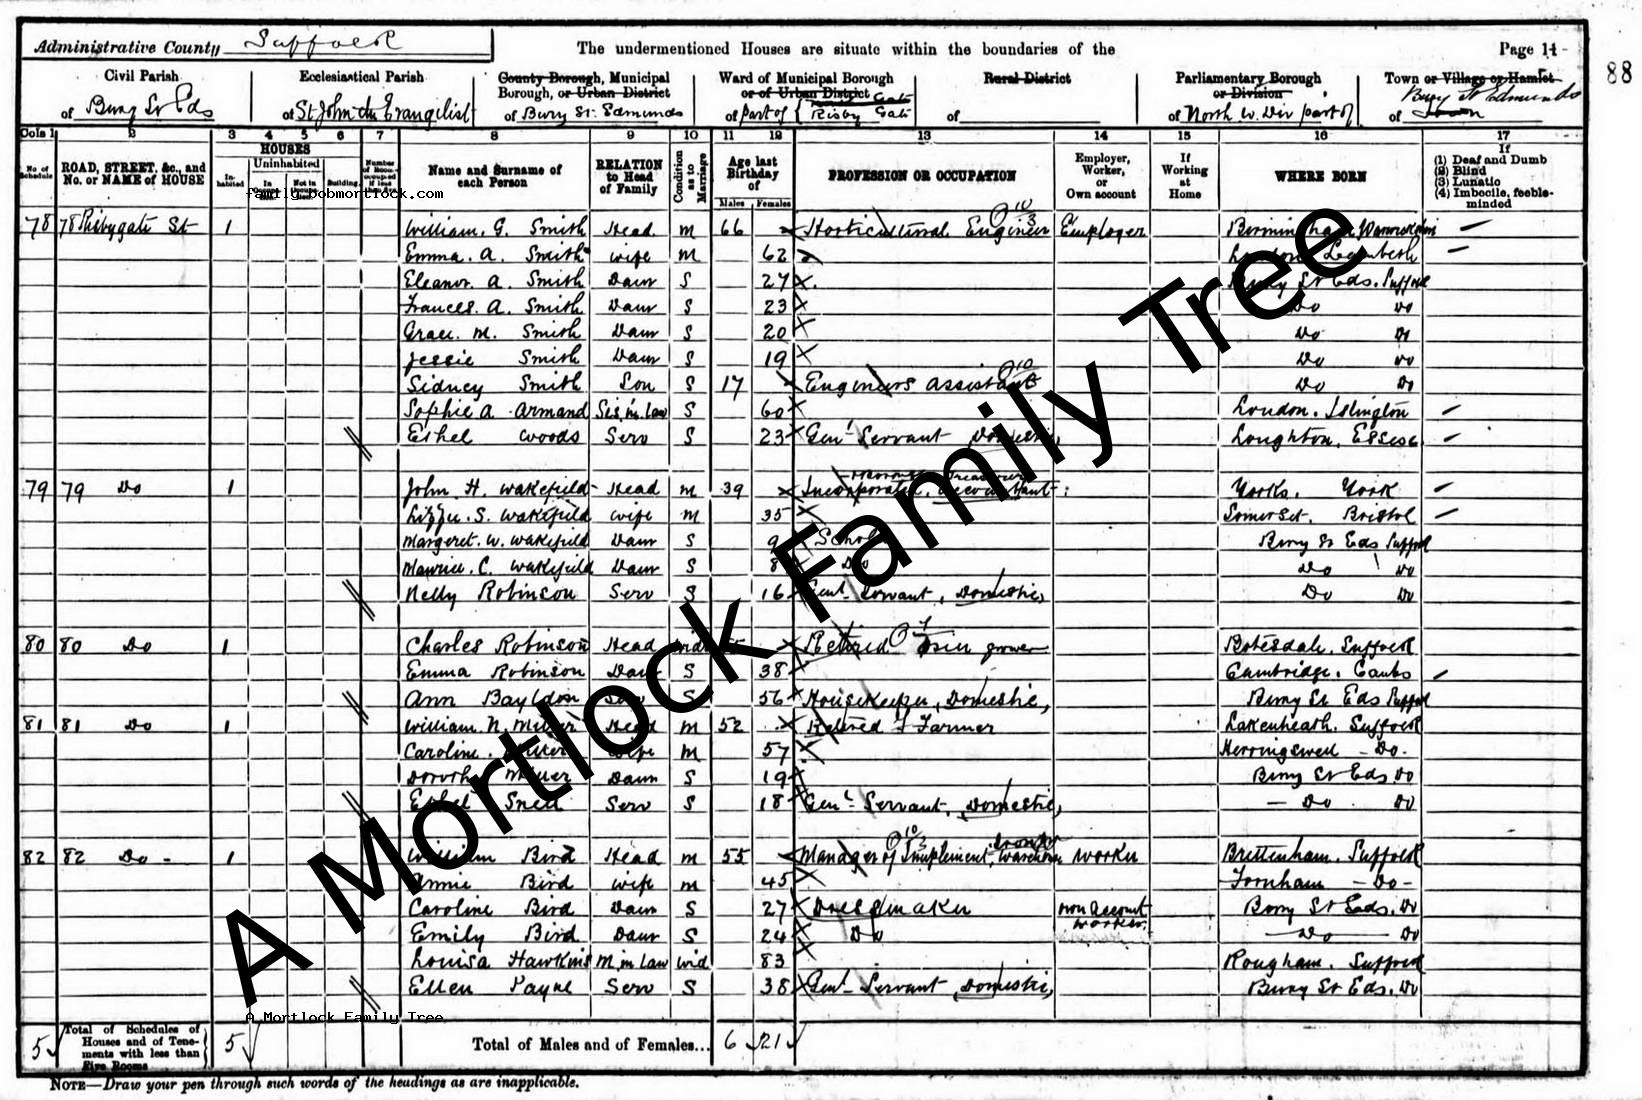 Administrative County Suffolk
The undermentioned Houses are situate within the boundaries of the
Page 11
88
Civil Parish
of Bury St Eds
Ecclesiastical Parish
of St John the Evangelist
County Borough, Municipal
Borough, or Urban District
of Bury St. Edmunds
Ward of Municipal Borough
or of Urban District
of part of { Risby Gate
Rural District
of
Parliamentary Borough
or Division
of North W. Div part of
Town or Village or Hamlet
of Bury St Edmunds
Cols 1 2 3 4 5 6 7 8 9 10 11 12 13 14 15 16 17
No. of Schedule
ROAD, STREET, &c., and No. or NAME of HOUSE
HOUSES
Inhabited
Uninhabited
Building
Name and Surname of each Person
RELATION to Head of Family
Condition as to Marriage
Age last Birthday of
Males Females
PROFESSION OR OCCUPATION
Employer, Worker, or Own account
If Working at Home
WHERE BORN
If
(1) Deaf and Dumb
(2) Blind
(3) Lunatic
(4) Imbecile, feeble-minded
family.bobmortlock.com
78 78 Risbygate St 1 William. G. Smith Head M 66 Horticultural Engineer Employer Birmingham
Emma. A. Smith wife M 62 London Lambeth
Eleanor. A. Smith Daur S 27 Bury St Eds. Suffolk
Frances. A. Smith Daur S 23 Do Do
Grace. M. Smith Daur S 20 Do Do
Jessie Smith Daur S 19 Do Do
Sidney Smith Son S 17 Engineers assistant Do Do
Sophie A. Armand Sis in law S 60 London. Islington
Ethel Woods Serv S 23 Genl Servant Domestic, Loughton, Essex
79 79 Do 1 John. H. Wakefield Head M 39 Incorporated Accountant Yorks. York
Lizzie. S. Wakefield wife M 35 Somerset. Bristol
Margaret. W. Wakefield Daur S 9 Bury St Eds Suffolk
C. Wakefield Daur S 8 Do Do Do
Nelly Robinson Serv S 16 Genl Servant, Domestic, Do Do
80 80 Do 1 Charles Robinson Head Wid Retired Botesdale. Suffolk
Emma Robinson Daur S 38 Cambridge. Cambs
Ann Bayldon Serv S 56 Housekeeper, Domestic, Bury St Eds Suffolk
81 81 Do 1 William. N. Miller Head M 52 Retired Farmer Lakenheath. Suffolk
Caroline. Miller wife M 57 Herringswell - Do -
Miller Daur S 19 Bury St Eds Do
Ethel Snell Serv S 18 Genl Servant, Domestic, - Do Do
82 82 Do - 1 William Bird Head M 55 Manager of Implement, Warehouse worker Brettenham. Suffolk
Annie Bird wife M 45 Fornham - Do -
Caroline Bird Daur S 27 Dressmaker own account Bury St Eds. Do
Emily Bird Daur S 24 Do worker. Do Do
Louisa Hawkins M. in Law Wid 83 Rougham. Suffolk
Ellen Payne Serv S 38 Genl Servant, Domestic, Bury St Eds. Do
A Mortlock Family Tree
A Mortlock Family Tree
5 Total of Schedules of Houses and of Tenements with less than Five Rooms 5 Total of Males and of Females... 6 21
NOTE—Draw your pen through such words of the headings as are inapplicable.